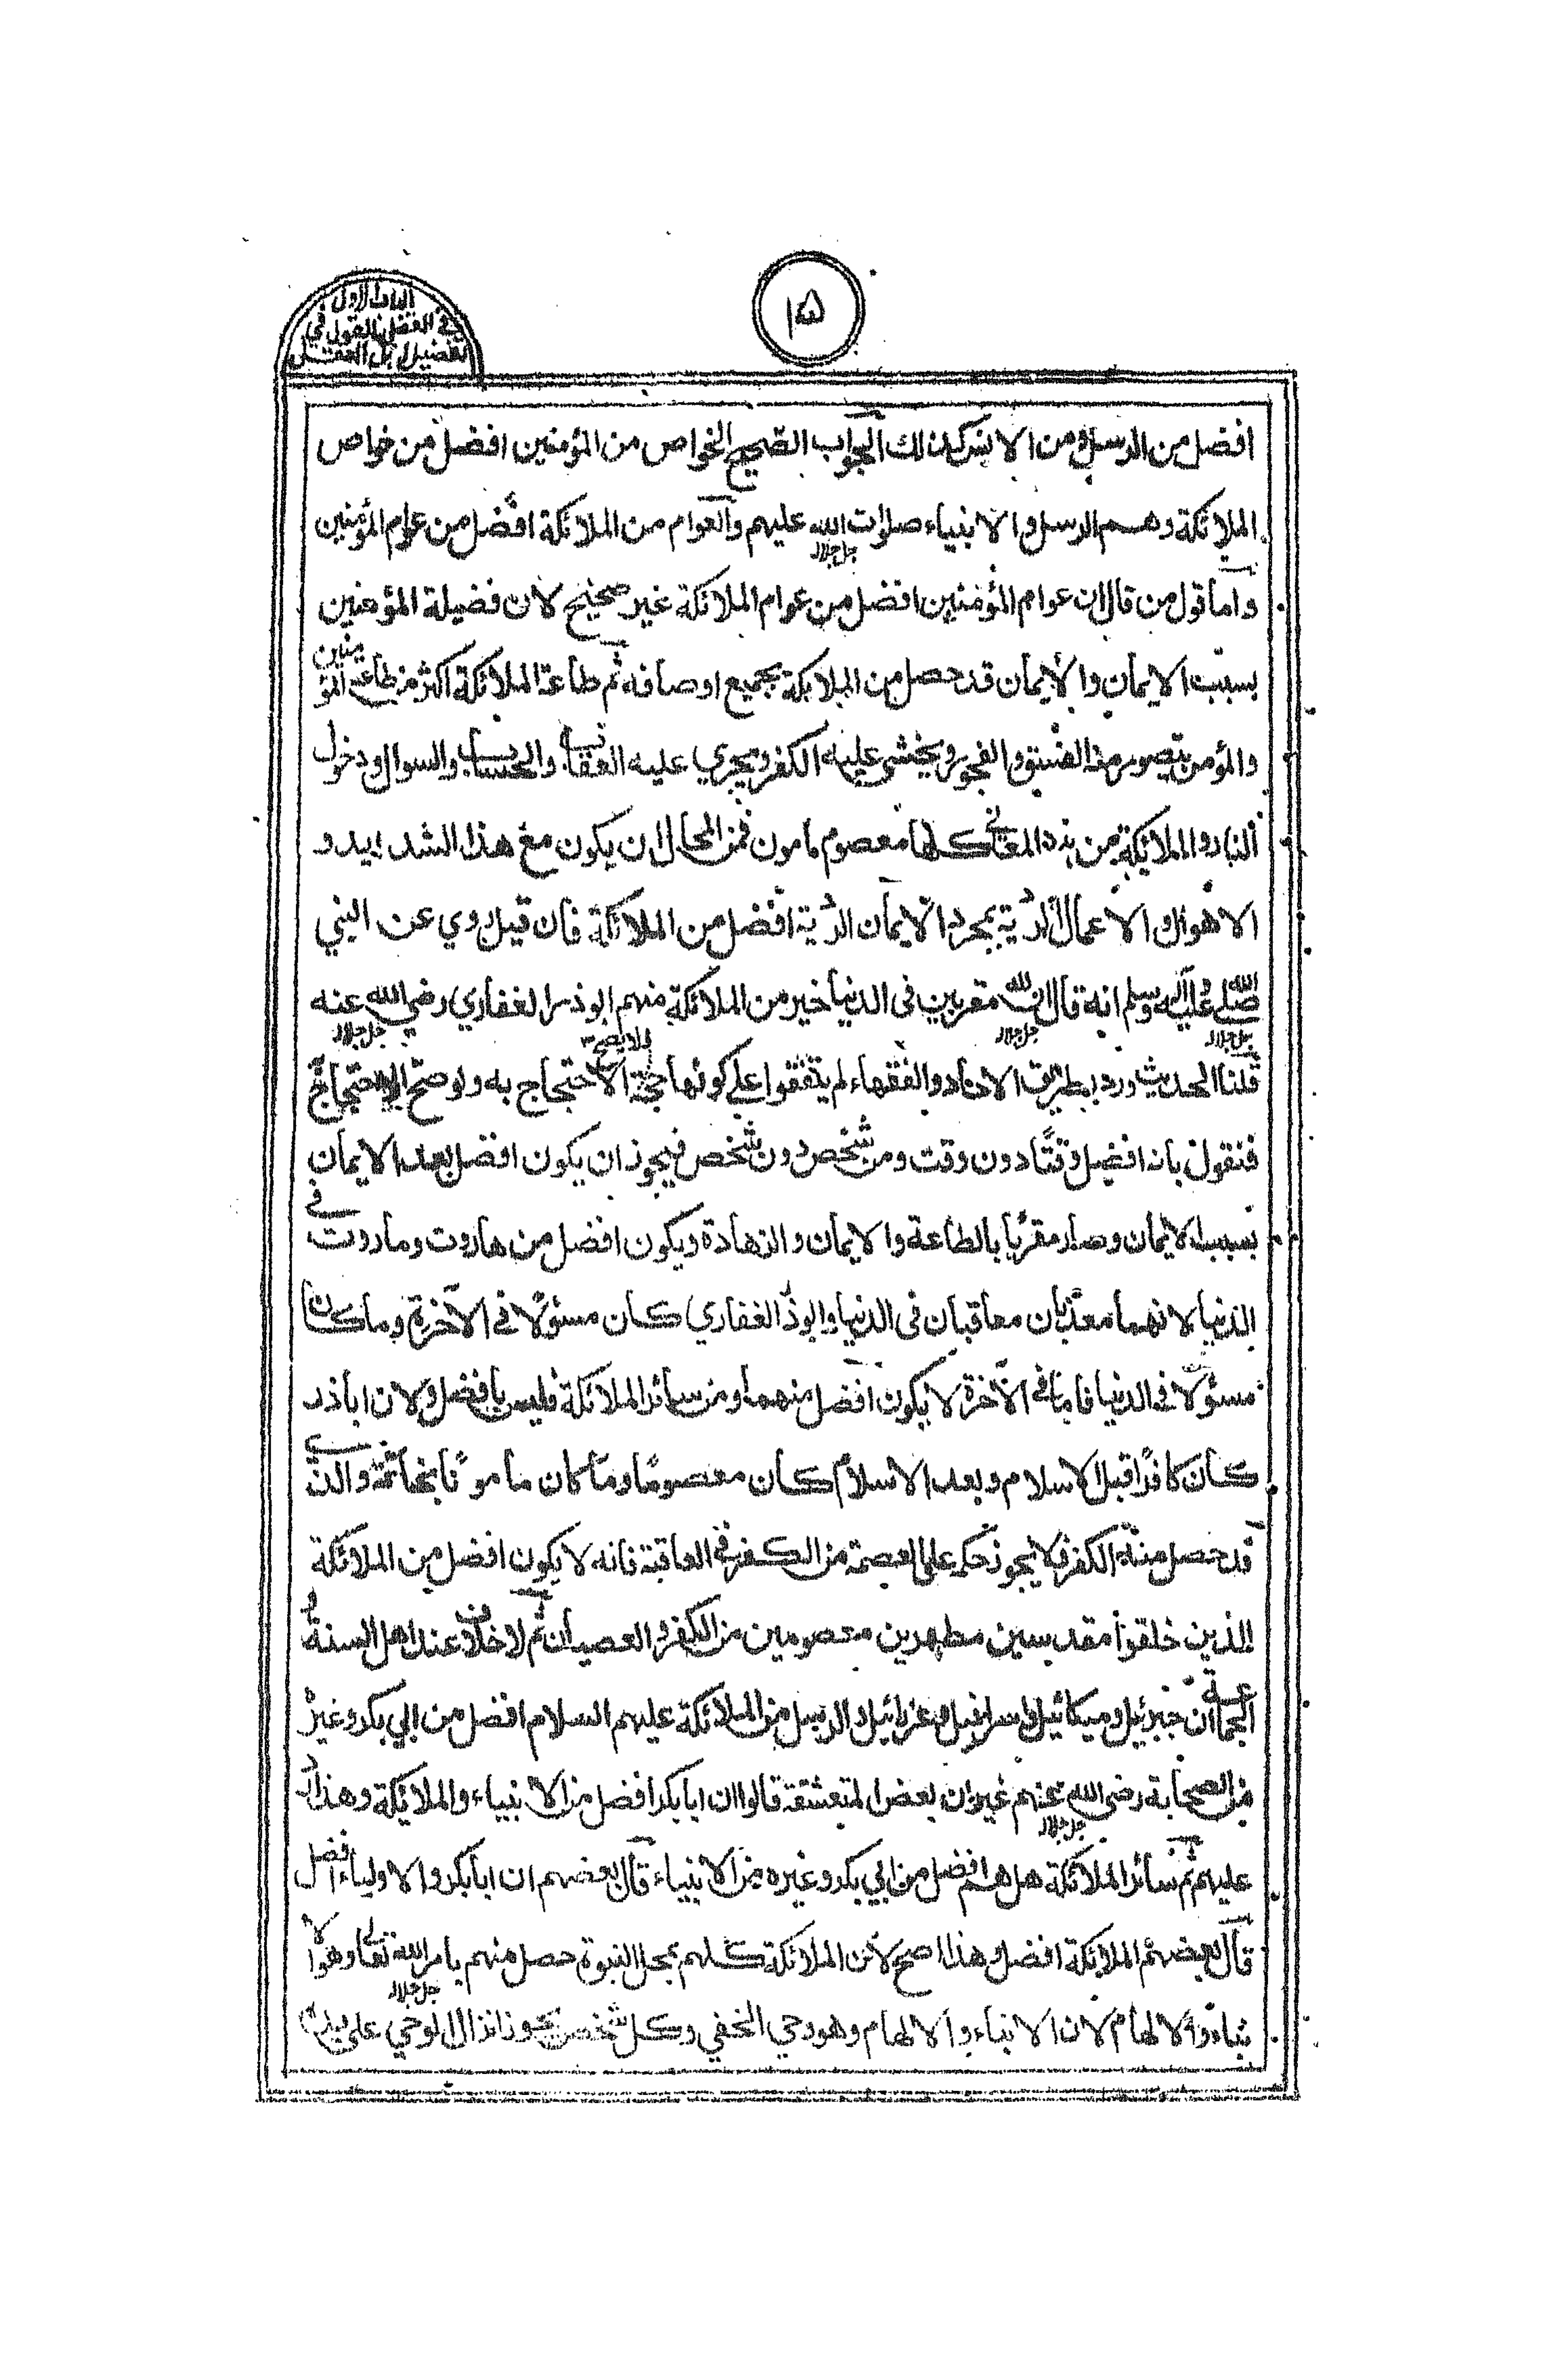 الباب الاول
في الفضل القول في
تفضيل اهل العقل
١٥
افضل من الرسل ومن الانس كذلك الجواب الصحيح الخواص من المؤمنين افضل من خواص
الملائكة وهم الرسل والانبياء صلوات الله عليهم والعوام من الملائكة افضل من عوام المؤمنين
جل جلاله
واما قول من قال ان عوام المؤمنين افضل من عوام الملائكة غير صحيح لان فضيلة المؤمنين
بسبب الايمان والايمان قد حصل من الملائكة بجميع اوصافه ثم طاعة الملائكة اكثر من طاعة المؤمنين
والمؤمن يتصور منه الفسق والفجور ويخشى عليه الكفر ويجري عليه العقاب والحساب والسوال ودخول
النار والملائكة من هذه كلها معصوم مامون فمن المحال ان يكون مع هذا الشدايد و
الاهوال والاعمال الردية بمجرد الايمان الردية افضل من الملائكة فان قيل روي عن النبي
صلى الله عليه وآله وسلم انه قال ان لله مقربين فى الدنيا خير من الملائكة منهم ابوذر الغفاري رضي الله عنه
جل جلاله جل جلاله جل جلاله
قلنا الحديث ورد بطريق الاحاد والفقهاء لم يتفقوا على كونها حجة فلا يصح الاحتجاج به ولو صح الاحتجاج
فنقول بانه افضل وقتًا دون وقت ومن شخص دون شخص فيجوز ان يكون افضل بعد الايمان
بسبب الايمان وصار مقربًا بالطاعة والايمان والزهادة ويكون افضل من هاروت وماروت في
الدنيا لانهما معذبان معاقبان فى الدنيا وابوذر الغفاري كان مسئولا في الآخرة وما كان
مسئولا في الدنيا فاما في الآخرة لا يكون افضل منهما ومن سائر الملائكة فليس بافضل ولان اباذر
كان كافرًا قبل الاسلام وبعد الاسلام كان معصومًا وما كان مامونًا بخاتمته والذي
قد حصل منه الكفر فلا يجوز حكم على العصمة من الكفر في العاقبة فانه لا يكون افضل من الملائكة
الذين خلقوا مقدسين مطهرين معصومين من الكفر والعصيان ثم لا خلاف عند اهل السنة و
الجماعة ان جبرئيل وميكائيل واسرافيل وعزرائيل والرسل من الملائكة عليهم السلام افضل من ابي بكر وغيره
من الصحابة رضى الله عنهم غير ان بعض المتعشقة قالوا ان ابا بكر افضل من الانبياء والملائكة وهذا رد
جل جلاله
عليهم ثم سائر الملائكة هل هم افضل من ابي بكر وغيره من الانبياء قال بعضهم ان ابابكر والاولياء افضل
قال بعضهم الملائكة افضل وهذا اصح لان الملائكة كلهم بمحل النبوة حصل منهم بامر الله تعالى وهو الا
جل جلاله
نباء والالهام لان الانباء والالهام وهو وحي الخفي وكل شخص يجوز انزال الوحي على